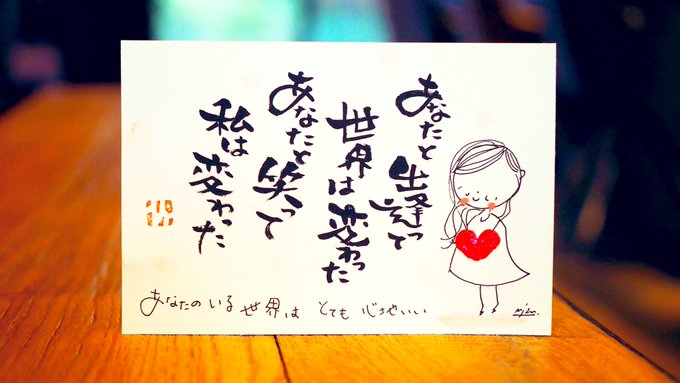 あなたと出逢って
世界は変わった
あなたと笑って
私は変わった
あなたのいる世界は とても心地いい